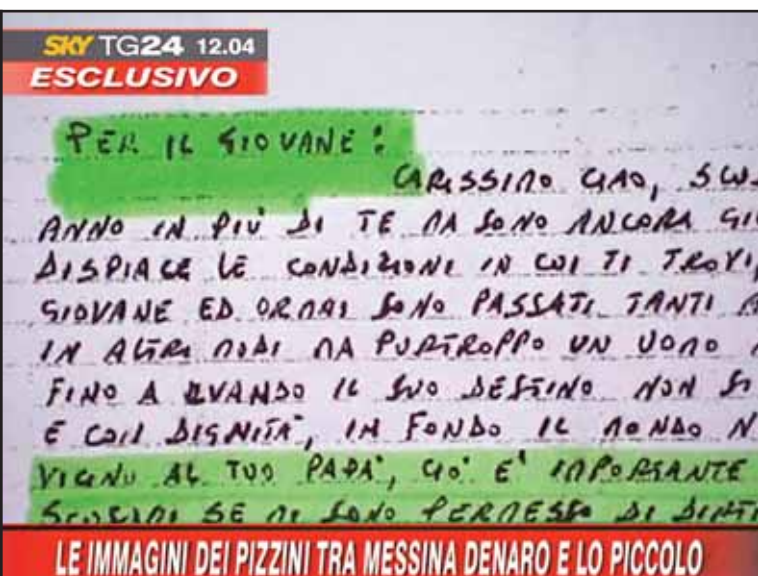 SKY TG24 12.04
ESCLUSIVO
PER IL GIOVANE:
CARISSIMO CIAO, SCU
ANNO IN PIÙ DI TE MA SONO ANCORA GIO
DISPIACE LE CONDIZIONI IN CUI TI TROVI,
GIOVANE ED ORMAI SONO PASSATI TANTI A
IN ALTRI MODI MA PURTROPPO UN UOMO
FINO A QUANDO IL SUO DESTINO NON SI
E CON DIGNITA', IN FONDO IL MONDO N
VICINO AL TUO PAPA', CIO' E' IMPORTANTE
SCUSAMI SE MI SONO PERMESSO DI DIRTI
LE IMMAGINI DEI PIZZINI TRA MESSINA DENARO E LO PICCOLO